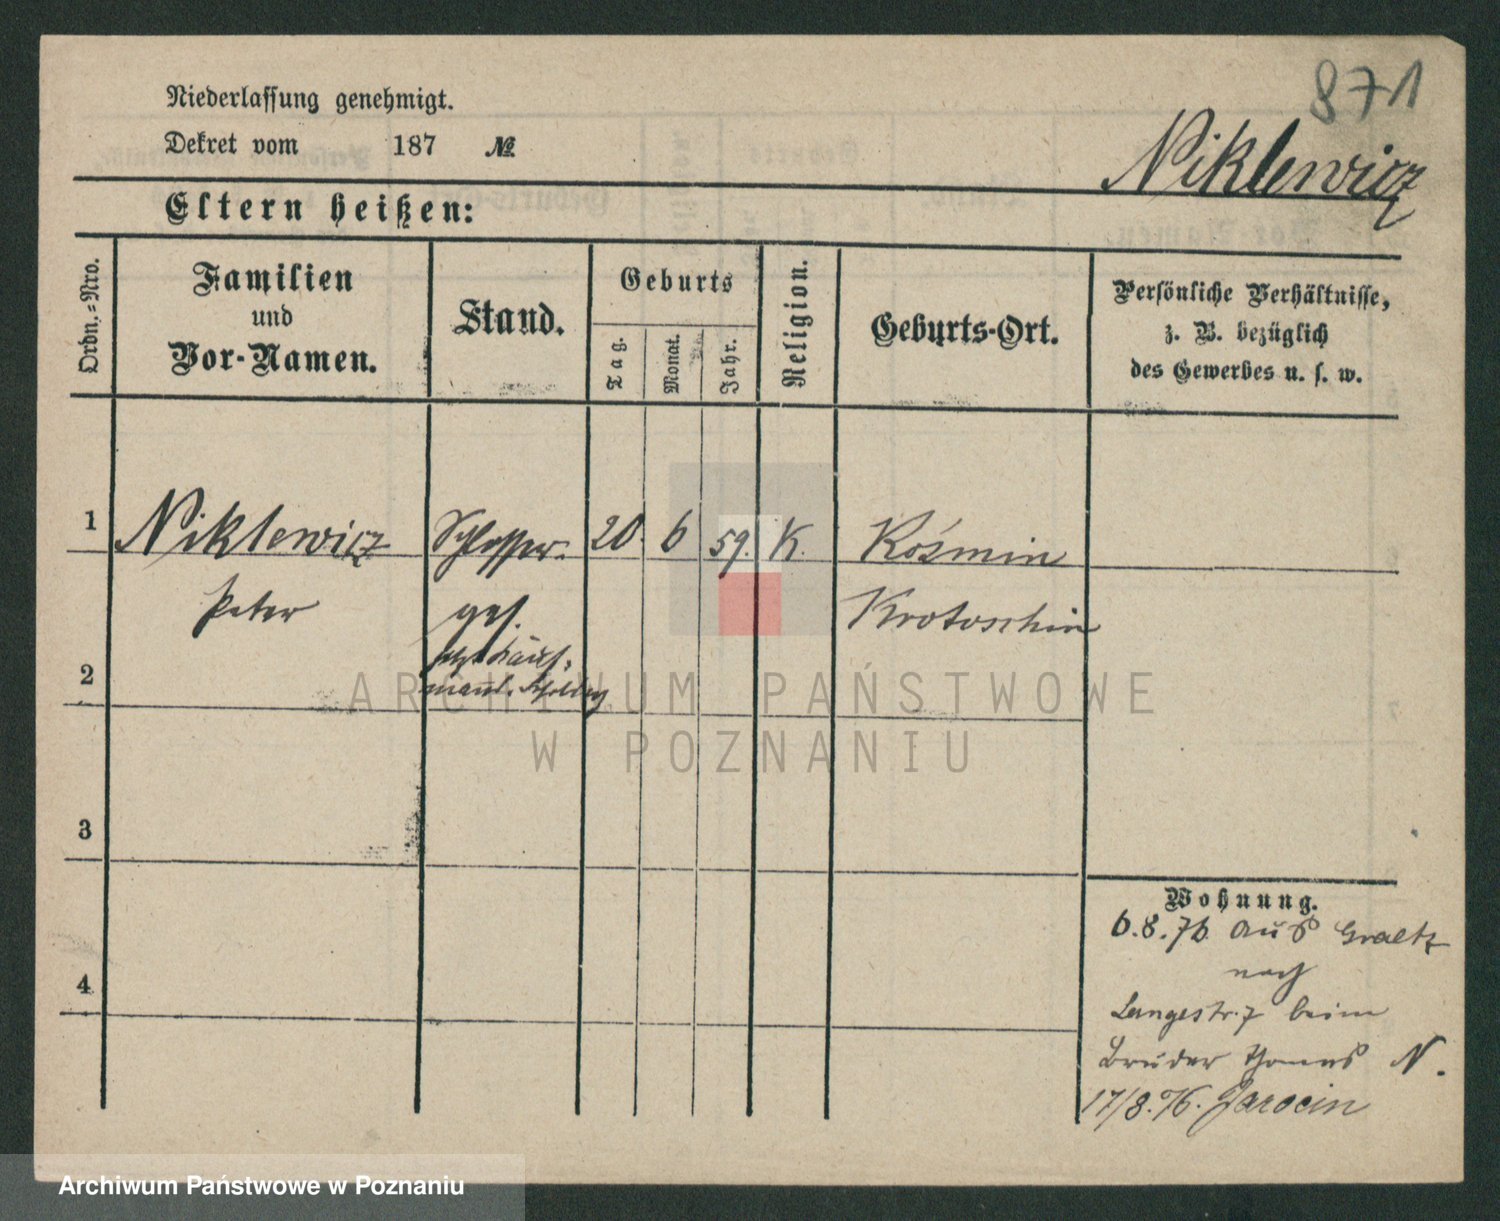 871
Niederlassung genehmigt.
Dekret vom 187 №
Niklewicz
Eltern heißen:
Ordn.=Nro.
Familien
und
Vor-Namen.
Stand.
Geburts
Tag.
Monat.
Jahr.
Religion.
Geburts-Ort.
Persönliche Verhältnisse,
z. B. bezüglich
des Gewerbes u. s. w.
1 Niklewicz Schlosser- 20. 6 59. K. Koźmin
Peter ges. Krotoschin
2
3
4
Wohnung.
6.8.76. aus
nach
Langestr. 7 beim
Bruder Thomas N.
17/8.76. Jarocin
ARCHIWUM PAŃSTWOWE
W POZNANIU
Archiwum Państwowe w Poznaniu